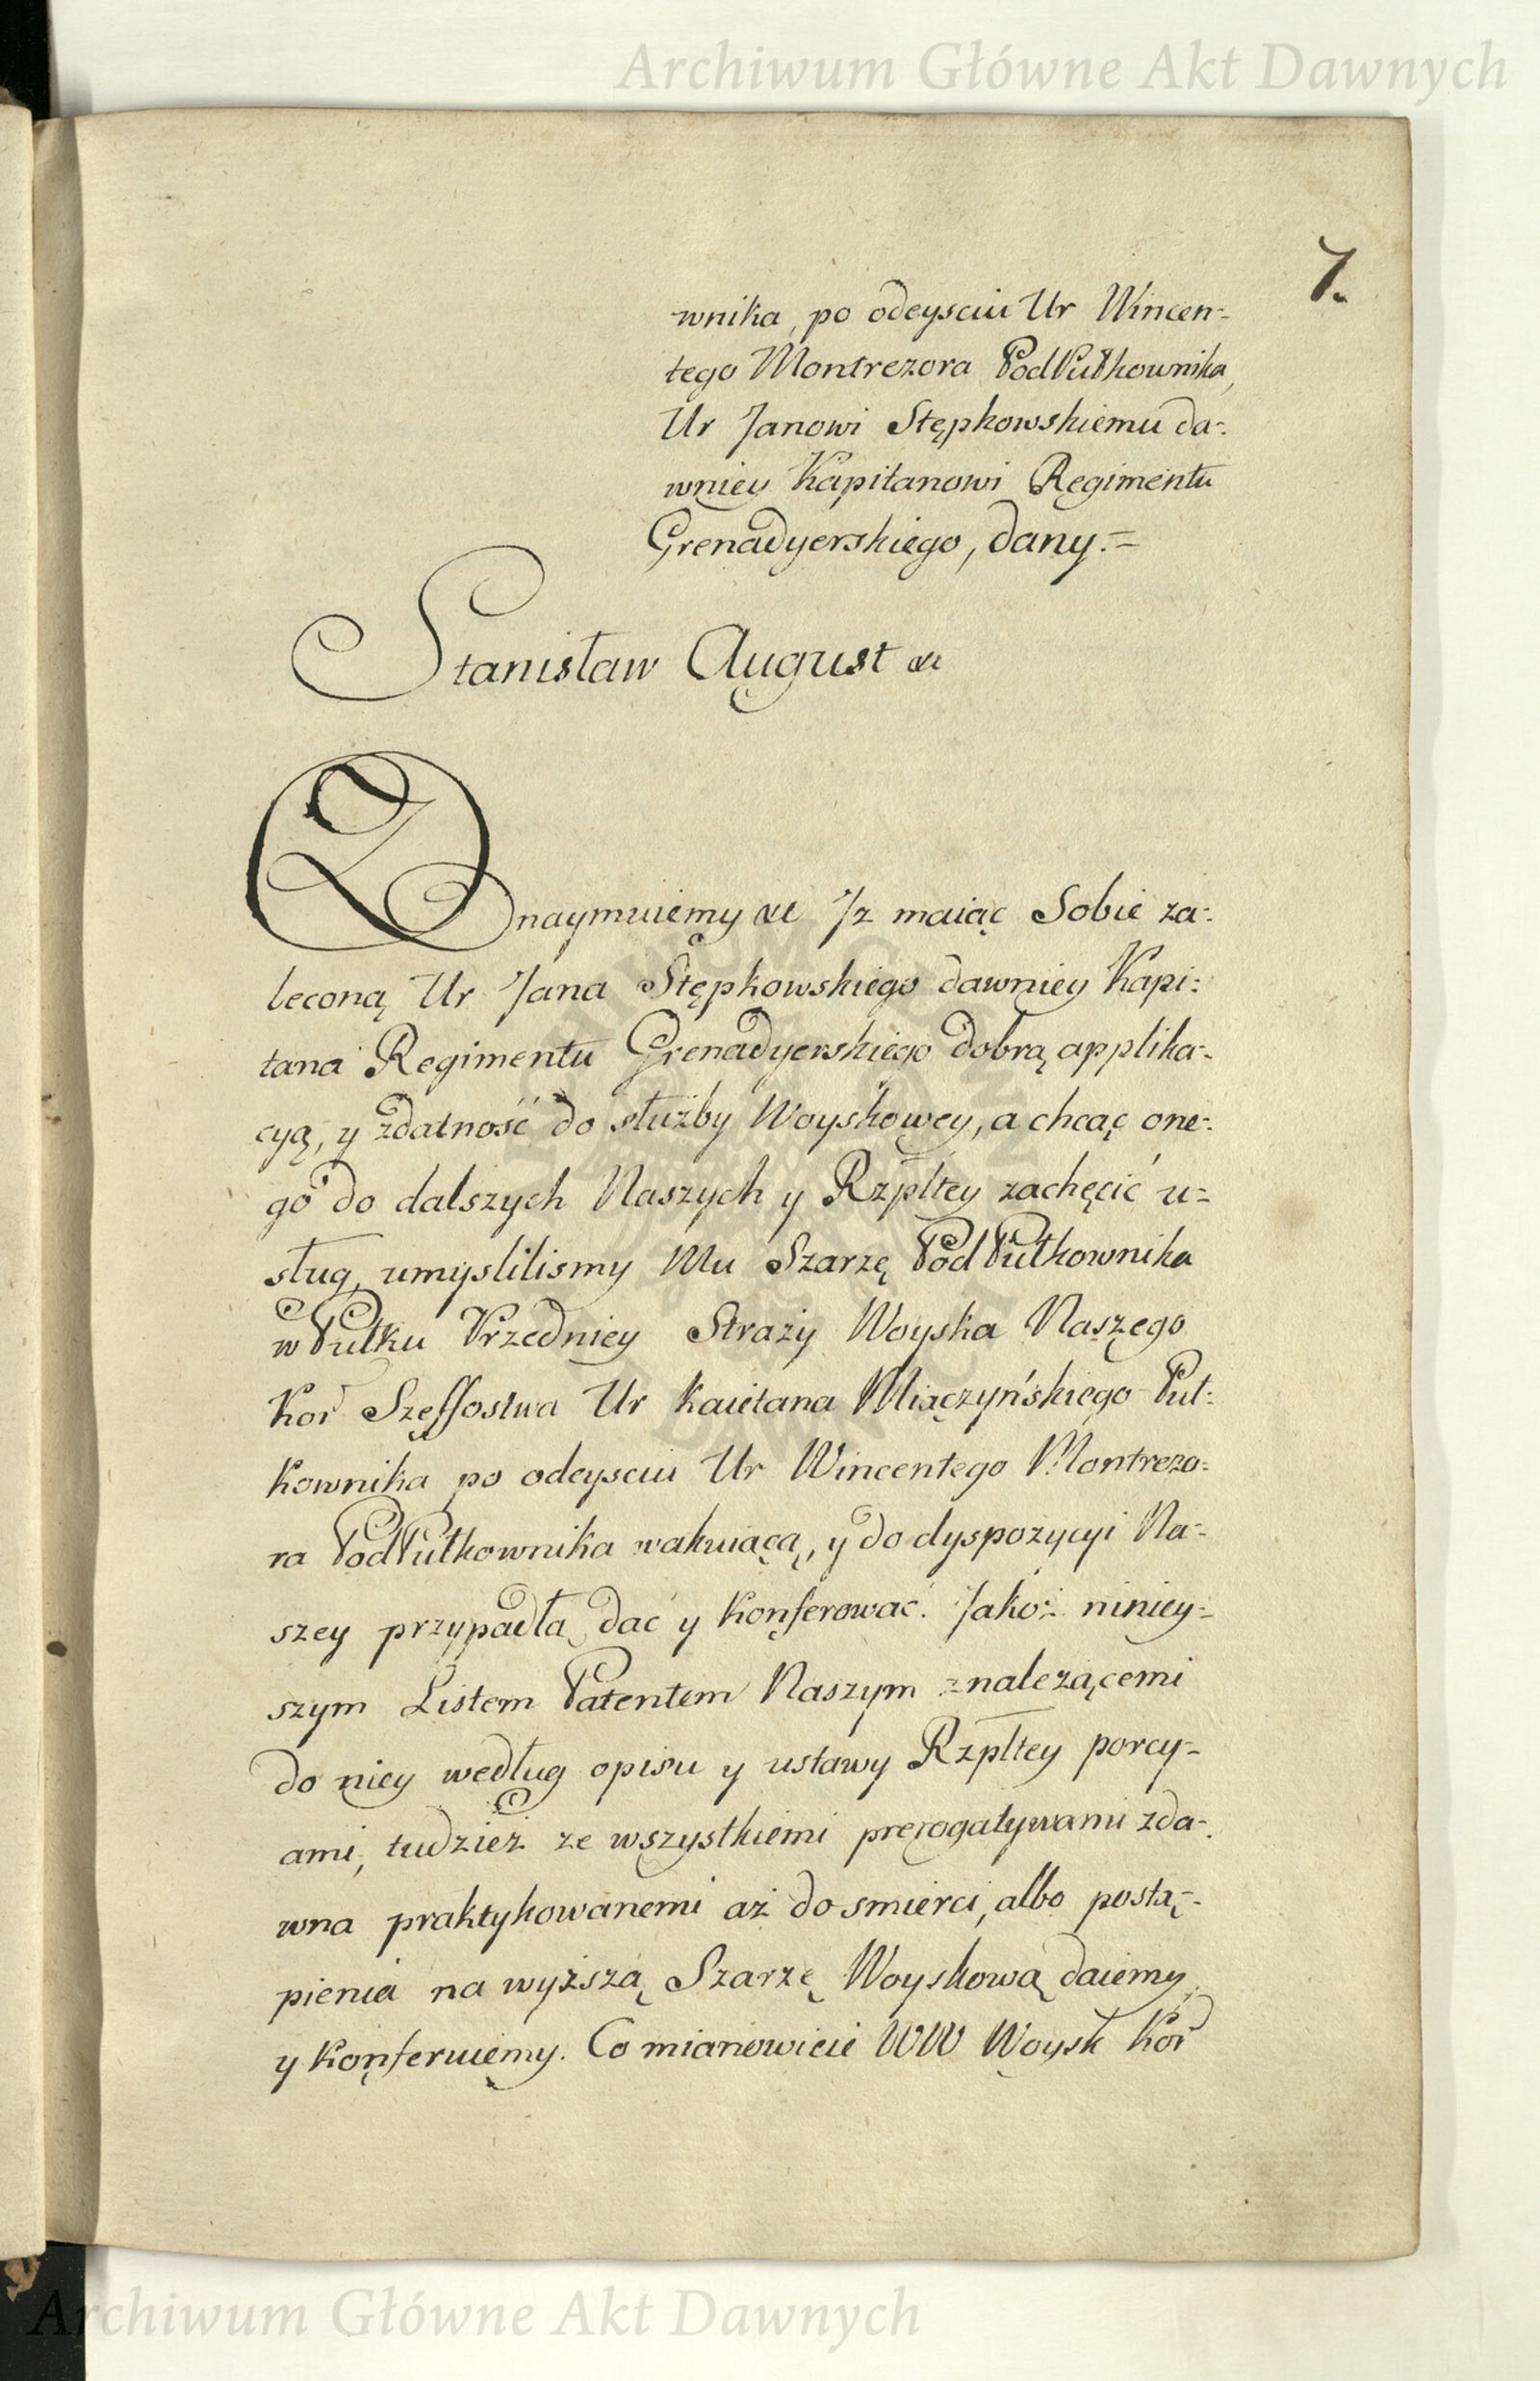 Archiwum Główne Akt Dawnych
7.
wnika, po odeysciu Ur Wincen-
tego Montrezora PodPułkownika,
Ur Janowi Stępkowskiemu da-
wniey Kapitanowi Regimentu
Grenadyerskiego, dany.=
Stanisław August &c
Oznaymuiemy &c Jz maiąc Sobie za-
leconą Ur Jana Stępkowskiego dawniey Kapi-
tana Regimentu Grenadyerskiego dobrą applika-
cyą, y zdatność do służby Woyskowey, a chcąc one-
go do dalszych Naszych y Rzpltey zachęcić u-
sług, umyslilismy Mu Szarżę PodPułkownika
w Pułku Przedniey Straży Woyska Naszego
Kor Szeffostwa Ur Kaietana Miączyńskiego Puł-
kownika po odeysciu Ur Wincentego Montrezo-
ra PodPułkownika wakuiącą, y do dyspozycyi Na-
szey przypadłą dać y konferować. Jakoż niniey-
szym Listem Patentem Naszym znależącemi
do niey według opisu y ustawy Rzpltey porcy-
ami, tudzież ze wszystkiemi prerogatywami zda-
wna praktykowanemi aż do smierci, albo postą-
pienia na wyższą Szarżę Woyskową daiemy
y konferuiemy. Co mianowicie WW Woysk Kor
Archiwum Główne Akt Dawnych